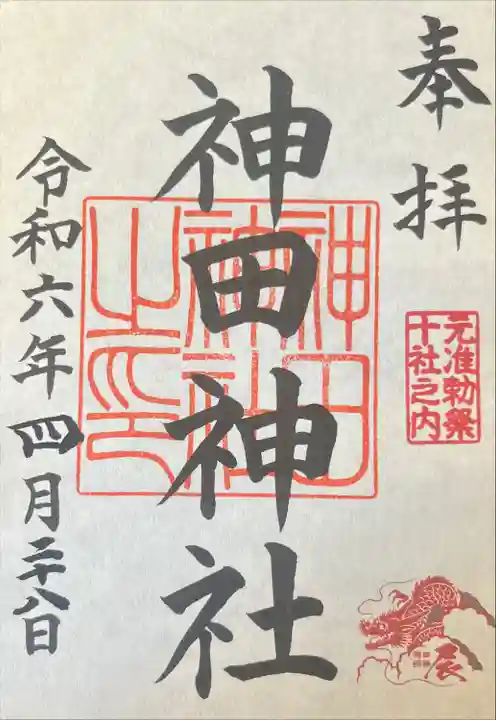 奉拝
元准勅祭
十社之内
辰
神田神社
神田
神社
之印
令和六年四月二十八日